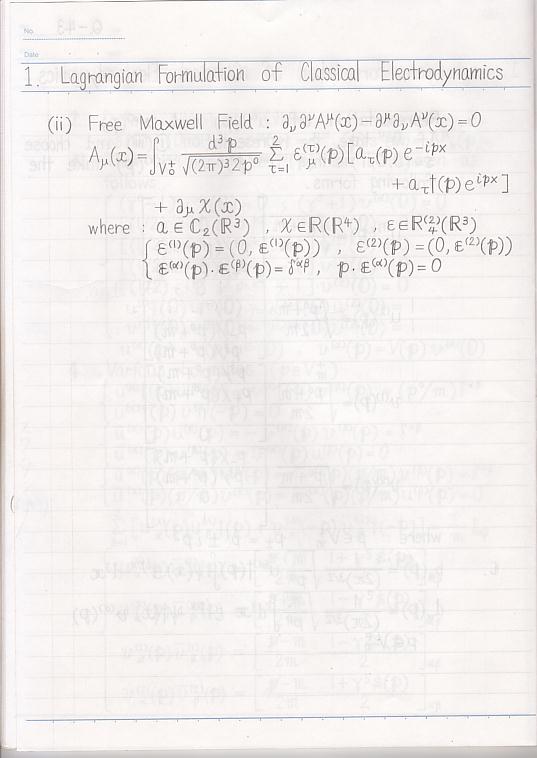 No.
Date
1. Lagrangian Formulation of Classical Electrodynamics
(ii) Free Maxwell Field : ∂_ν ∂^ν A^μ(x) − ∂^μ ∂_ν A^ν(x) = 0
A_μ(x) = ∫_{V_0^+} d³p / √((2π)³ 2p⁰) Σ_{τ=1}^{2} ε_μ^{(τ)}(p) [a_τ(p) e^{−ipx}
+ a_τ†(p) e^{ipx}]
+ ∂_μ χ(x)
where : a ∈ ℂ_2(ℝ³) , χ ∈ ℝ(ℝ⁴) , ε ∈ ℝ_4^{(2)}(ℝ³)
{ ε^{(1)}(p) = (0, ε^{(1)}(p)) , ε^{(2)}(p) = (0, ε^{(2)}(p))
ε^{(α)}(p) · ε^{(β)}(p) = δ^{αβ} , p · ε^{(α)}(p) = 0